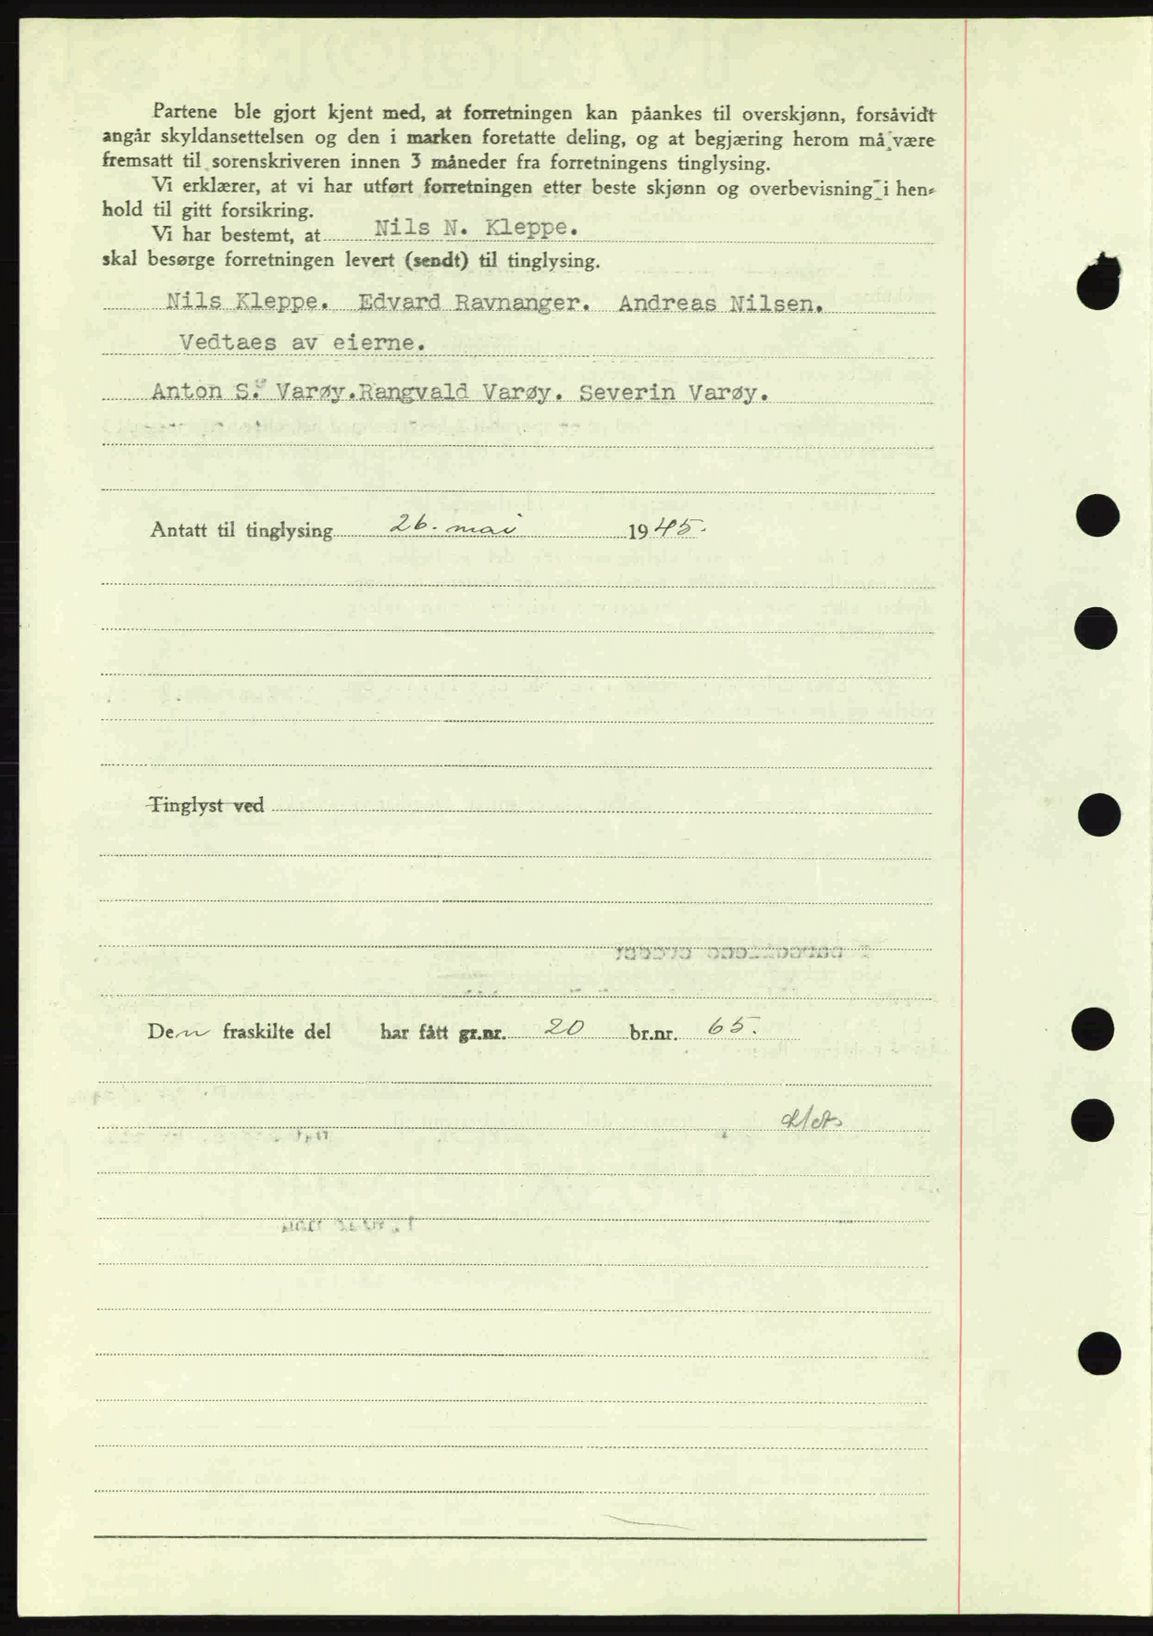 Partene ble gjort kjent med, at forretningen kan påankes til overskjønn, forsåvidt
angår skyldansettelsen og den i marken foretatte deling, og at begjæring herom må være
fremsatt til sorenskriveren innen 3 måneder fra forretningens tinglysing.
Vi erklærer, at vi har utført forretningen etter beste skjønn og overbevisning i hen-
hold til gitt forsikring.
Vi har bestemt, at Nils N. Kleppe.
skal besørge forretningen levert (sendt) til tinglysing.
Nils Kleppe. Edvard Ravnanger. Andreas Nilsen.
Vedtaes av eierne.
Anton S. Varøy. Rangvald Varøy. Severin Varøy.
Antatt til tinglysing 26. mai 1945.
Tinglyst ved
Den fraskilte del har fått gr.nr. 20 br.nr. 65.